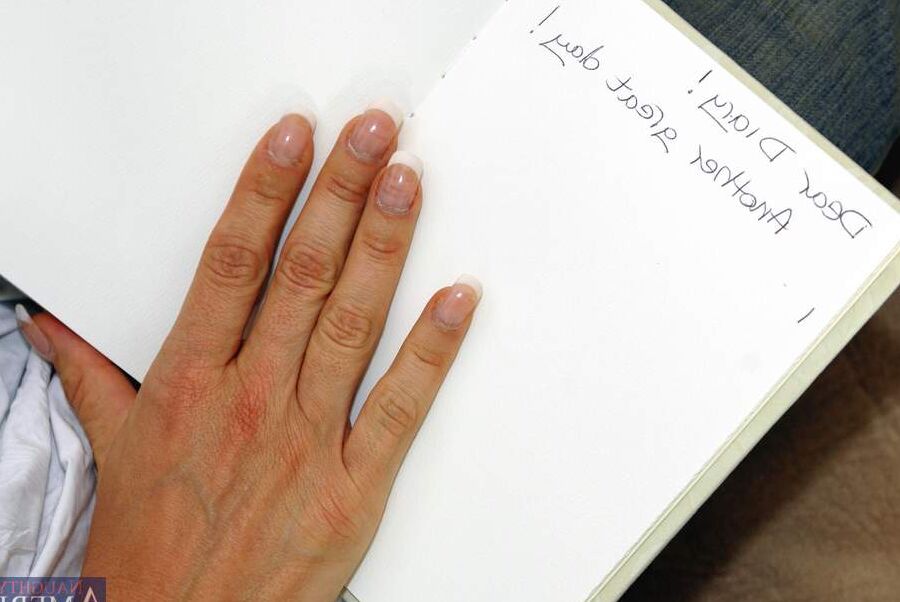 Dear Diary!
Another great day!
I
NAUGHTY